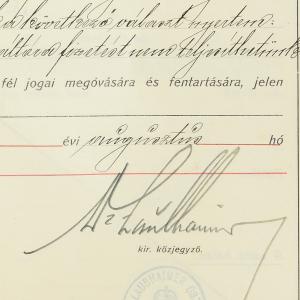 következő választ nyertem:
fizetést nem teljesíthetünk
fél jogai megóvására és fentartására, jelen
évi augusztus hó
Dr Laubhaimer
kir. közjegyző.
LAUBHAIMER